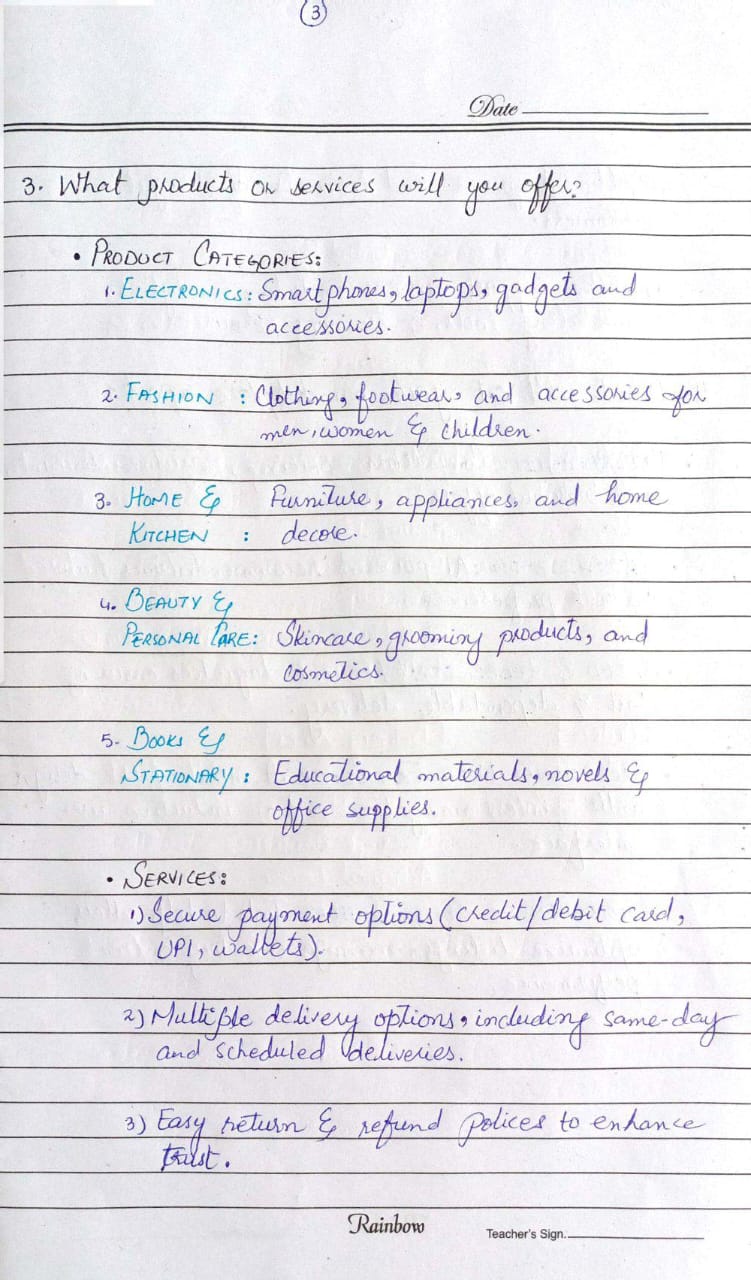 3
Date
3. What products or services will you offer?
• PRODUCT CATEGORIES:
1. ELECTRONICS: Smartphones, laptops, gadgets and
accessories.
2. FASHION : Clothing, footwear, and accessories for
men, women & children.
3. HOME & Furniture, appliances, and home
KITCHEN : decore.
4. BEAUTY &
PERSONAL CARE: Skincare, grooming products, and
cosmetics.
5. BOOKS &
STATIONARY: Educational materials, novels &
office supplies.
• SERVICES:
1) Secure payment options (credit/debit card,
UPI, wallets).
2) Multiple delivery options, including same-day
and scheduled deliveries.
3) Easy return & refund polices to enhance
trust.
Rainbow
Teacher's Sign.